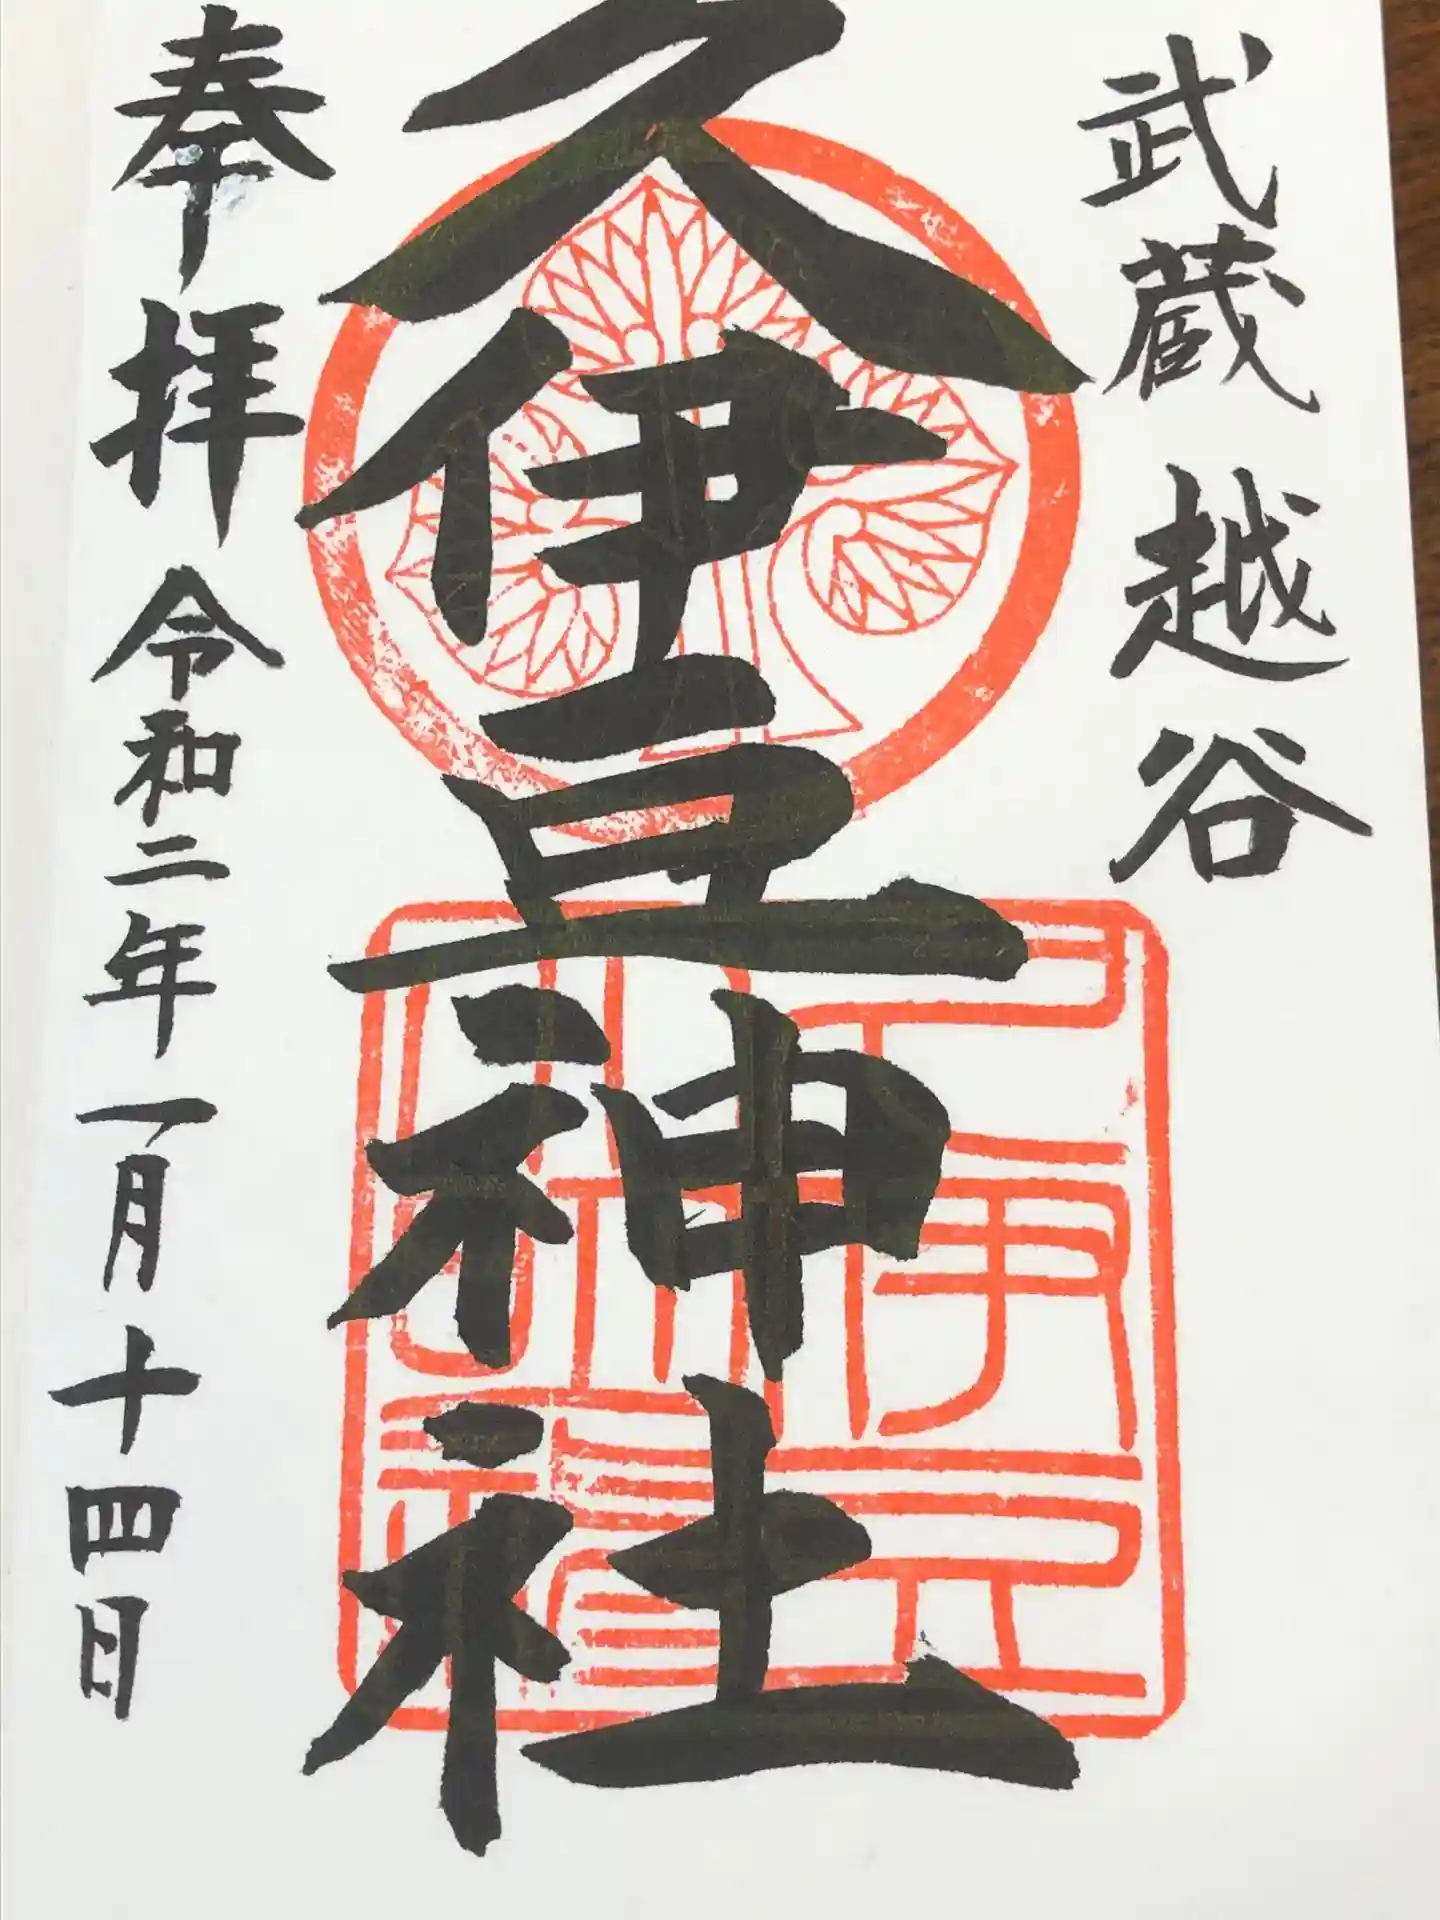 武蔵 越谷
久伊豆神社
奉拝 令和二年一月十四日
久伊豆神社